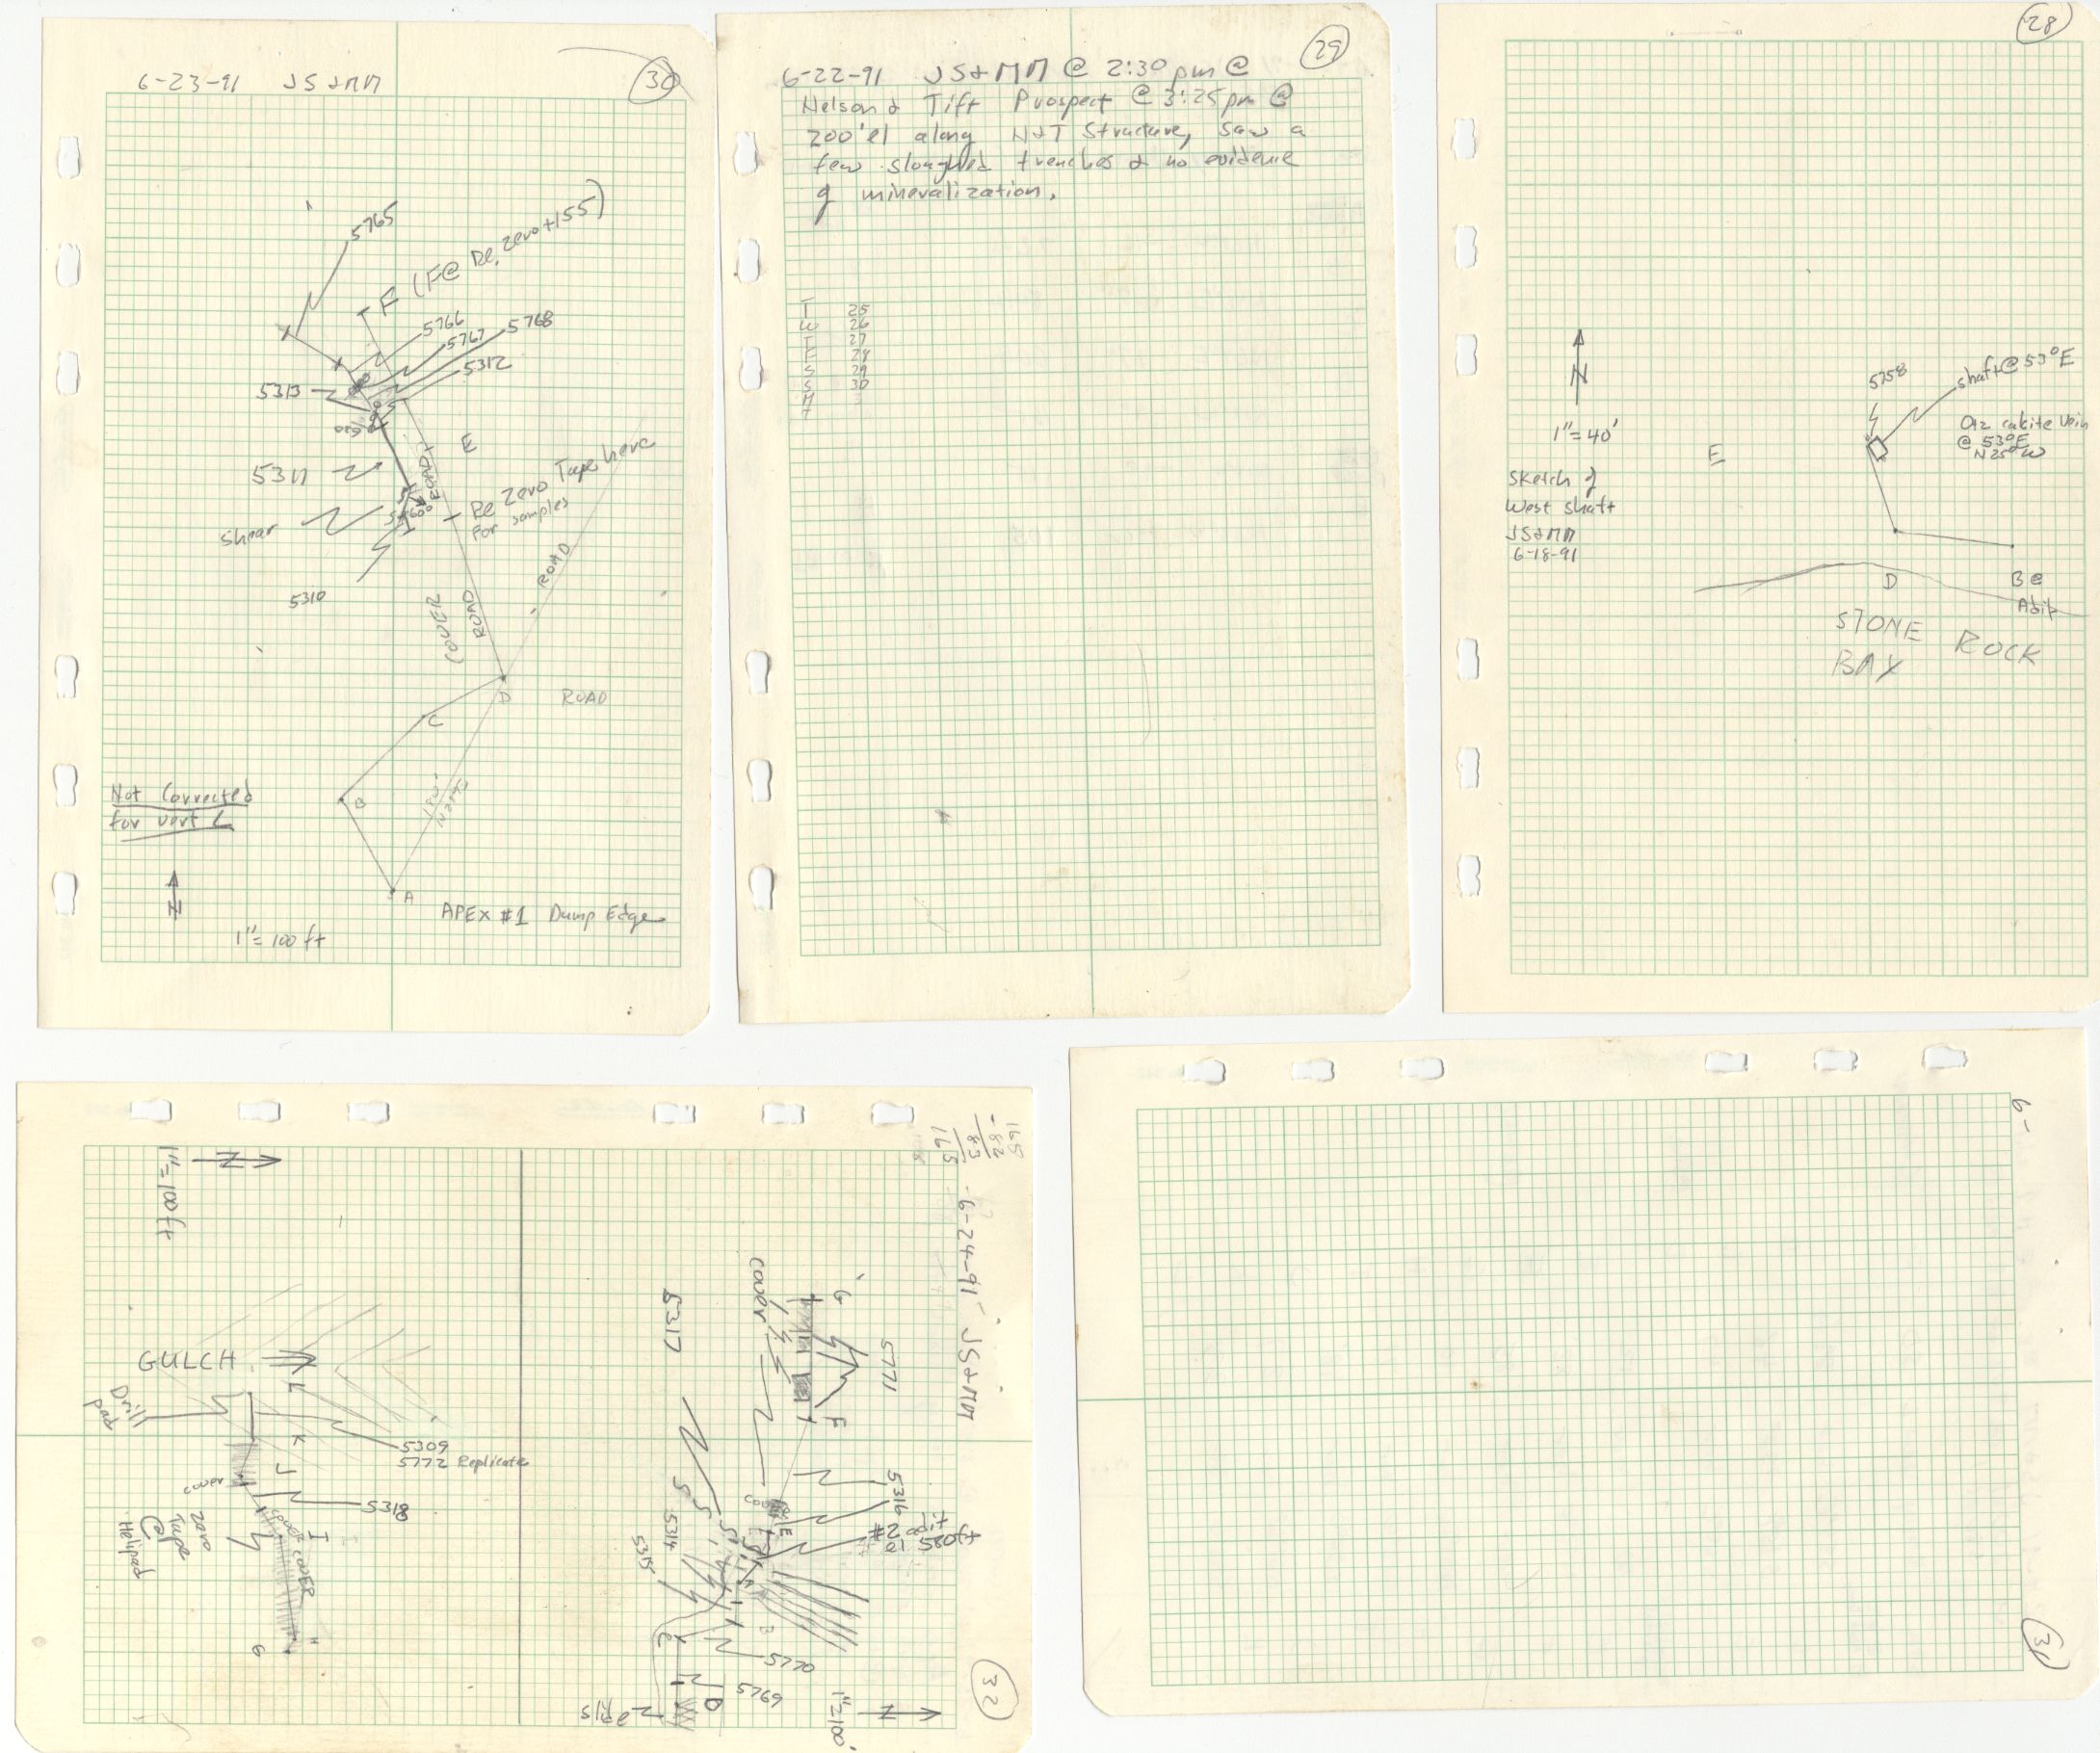 30
6-23-91 JS&MM
5765
F (F@ Re. zero +155)
5766
5767
5768
5312
5313
E
5311
ROAD
Re Zero Tape here
For samples
Shear
5310
COVER
ROAD
ROAD
D
ROAD
C
B
180'
Not Corrected
for vert ∠
A
APEX #1 Dump Edge
N
1"=100 ft
29
6-22-91 JS&MM @ 2:30 pm @
Nelson & Tift Prospect @ 3:25 pm @
200' el along N&T Structure, saw a
few sloughed trenches & no evidence
of mineralization.
T 25
W 26
T 27
F 28
S 29
S 30
M
T
28
N
5758
shaft @ 53°E
1"=40'
Qtz calcite vein
@ 53°E
N25°W
E
Sketch of
West shaft
JS&MM
6-18-91
D
B @
Adit
STONE ROCK
BAY
165
-82
83
165
6-24-91 JS&MM
32
1"=100 ft
N
GULCH
L
Drill
Pad
K
5309
5772 Replicate
J
cover
5318
zero
Tape
@
Helipad
I
COVER
H
G
5317
cover
G
5771
F
5316
#2 adit
el 580ft
E
5314
5315
B
5770
5769
D
slide
1"=100'
N
6-
31